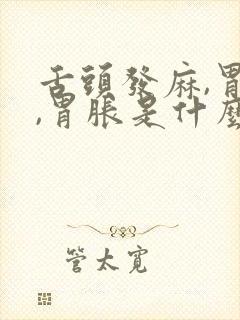 舌頭發麻,胃
,胃脹是什麼
管太寬